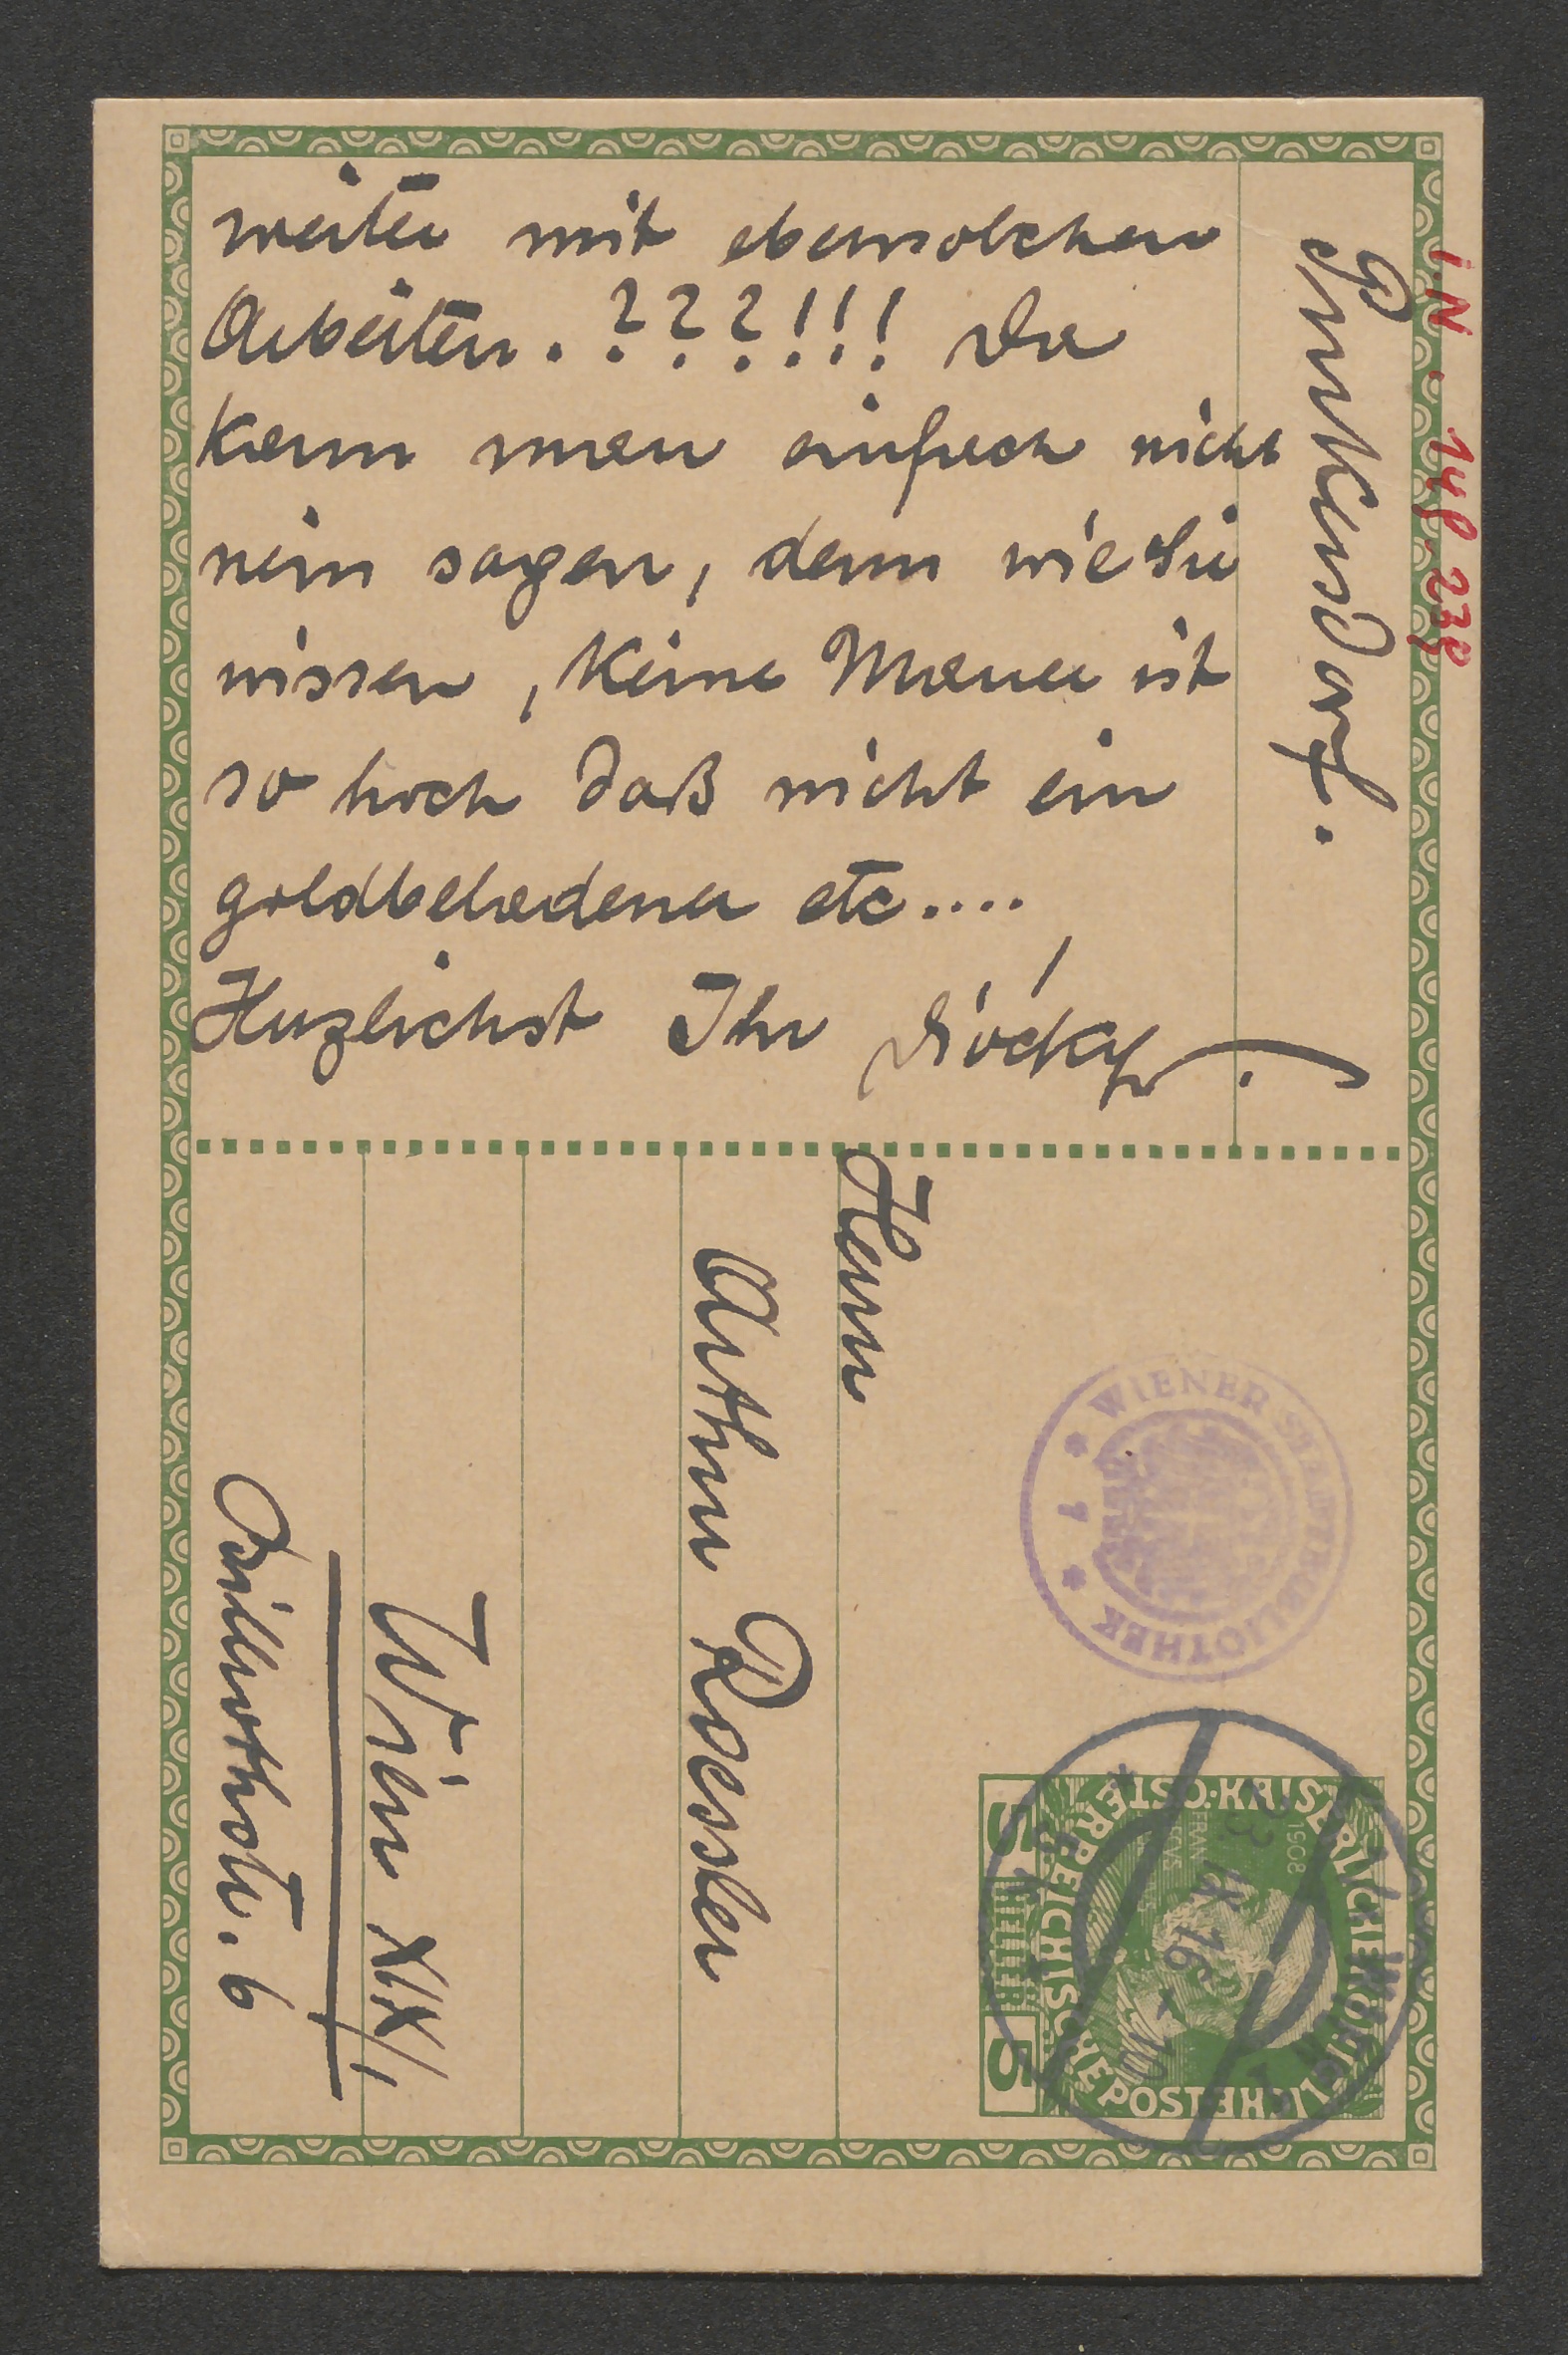 weiter mit ebensolchen
Arbeiten. ???!!! Da
kann man einfach nicht
nein sagen, denn wie Sie
wissen, keine Mauer ist
so hoch daß nicht ein
goldbeladener etc....
Herzlichst Ihr
Punkendorf.
I.N. 148.239
Herrn
Arthur Roessler
Wien XIX/1
Billrothstr. 6
WIENER STADTBIBLIOTHEK
* 1 *
KAISERLICHE KÖNIGLICHE
ÖSTERREICHISCHE POST
1908
5 HELLER 5
23 IX 16